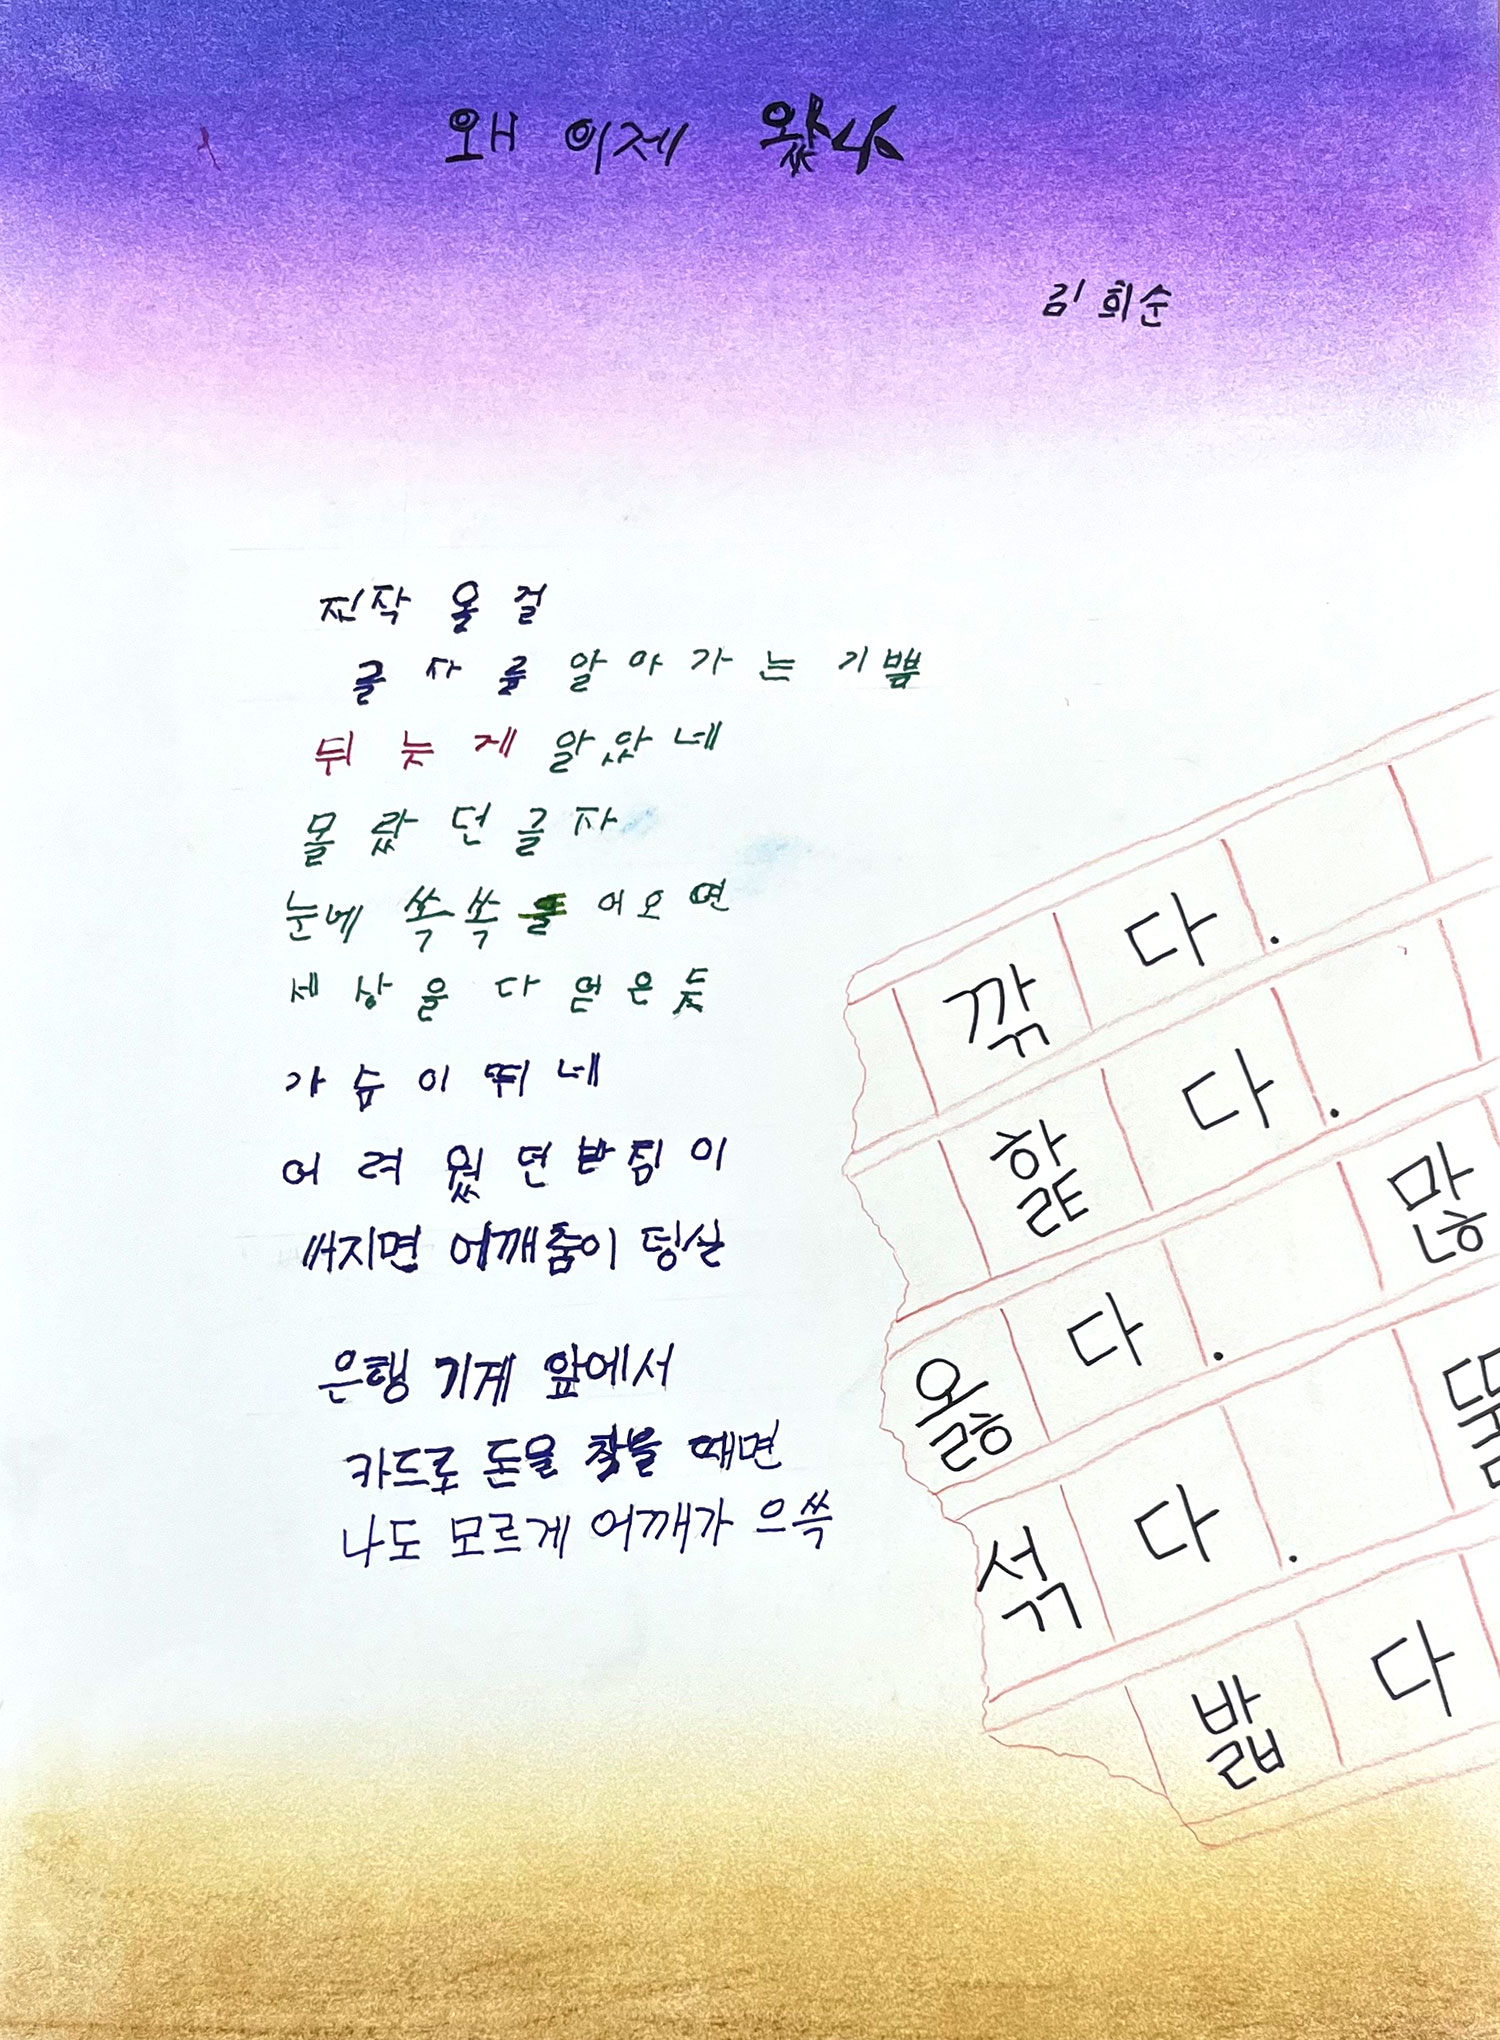 왜 이제 왔나
김희순
진작 올 걸
글자를 알아가는 기쁨
뒤늦게 알았네
몰랐던 글자
눈에 쏙쏙 들어오면
세상을 다 얻은 듯
가슴이 뛰네
어려웠던 받침이
써지면 어깨춤이 덩실
은행 기계 앞에서
카드로 돈을 찾을 때면
나도 모르게 어깨가 으쓱
깎다.
핥다.
옳다. 많
섞다.
밟다